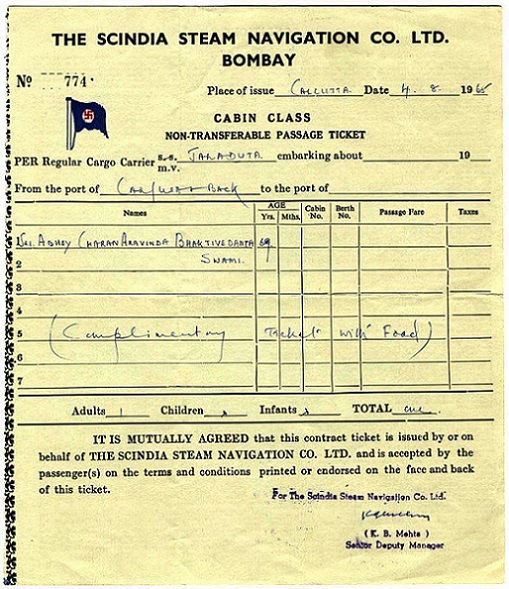 THE SCINDIA STEAM NAVIGATION CO. LTD.
BOMBAY
No 774.
Place of issue Calcutta Date 4. 8. 1965
CABIN CLASS
NON-TRANSFERABLE PASSAGE TICKET
PER Regular Cargo Carrier s.s. m.v. JALADUTA embarking about 19
From the port of Cal/ Back to the port of
Names AGE Yrs. Mths. Cabin No. Berth No. Passage Fare Taxes
Abhoy Charan Aravinda Bhaktivedanta 69
2 Swami.
3
4
5 (Complimentary Ticket with Food)
6
7
Adults 1 Children Infants TOTAL one.
IT IS MUTUALLY AGREED that this contract ticket is issued by or on
behalf of THE SCINDIA STEAM NAVIGATION CO. LTD. and is accepted by the
passenger(s) on the terms and conditions printed or endorsed on the face and back
of this ticket.
For The Scindia Steam Navigation Co. Ltd.
( K. B. Mehta )
Senior Deputy Manager